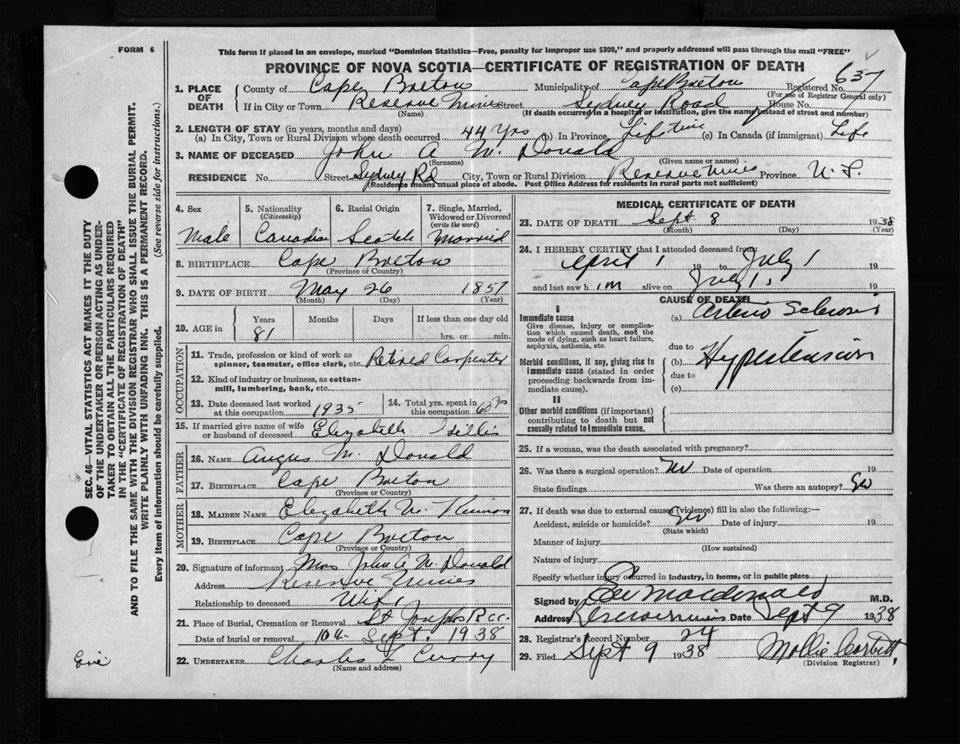 FORM 6
This form if placed in an envelope, marked "Dominion Statistics—Free, penalty for improper use $300," and properly addressed will pass through the mail "FREE"
PROVINCE OF NOVA SCOTIA—CERTIFICATE OF REGISTRATION OF DEATH
637
1. PLACE OF DEATH County of Cape Breton Municipality of Cape Breton Registered No.
(For use of Registrar General only)
If in City or Town Reserve Mines Street Sydney Road House No.
(Name) (If death occurred in a hospital or institution, give the name instead of street and number)
2. LENGTH OF STAY (in years, months and days)
(a) In City, Town or Rural Division where death occurred 44 Yrs (b) In Province Lifetime (c) In Canada (if immigrant) Life
3. NAME OF DECEASED John A McDonald
(Surname) (Given name or names)
RESIDENCE No. Street Sydney Rd City, Town or Rural Division Reserve Mines Province N. S.
(Residence means usual place of abode. Post Office Address for residents in rural parts not sufficient)
4. Sex 5. Nationality (Citizenship) 6. Racial Origin 7. Single, Married, Widowed or Divorced (write the word)
Male Canadian Scotch Married
8. BIRTHPLACE Cape Breton
(Province or Country)
9. DATE OF BIRTH May 26 1857
(Month) (Day) (Year)
10. AGE in Years Months Days If less than one day old
81 hrs. or min.
OCCUPATION
11. Trade, profession or kind of work as spinner, teamster, office clerk, etc. Retired Carpenter
12. Kind of industry or business, as cotton-mill, lumbering, bank, etc.
13. Date deceased last worked at this occupation 1935 14. Total yrs. spent in this occupation 60 yrs
15. If married give name of wife or husband of deceased Elizabeth Gillis
FATHER
16. NAME Angus McDonald
17. BIRTHPLACE Cape Breton
(Province or Country)
MOTHER
18. MAIDEN NAME Elizabeth McKinnon
19. BIRTHPLACE Cape Breton
(Province or Country)
20. Signature of informant Mrs John A McDonald
Address Reserve Mines
Relationship to deceased Wife
21. Place of Burial, Cremation or Removal St Joseph's
Date of burial or removal 10th Sept. 1938
22. UNDERTAKER Charles L Curry
(Name and address)
MEDICAL CERTIFICATE OF DEATH
23. DATE OF DEATH Sept 8 1938
(Month) (Day) (Year)
24. I HEREBY CERTIFY that I attended deceased from:
April 1 19 to July 1 19
and last saw him alive on July 1, 19
CAUSE OF DEATH
I
Immediate cause (a) Arterio Sclerosis
Give disease, injury or complication which caused death, not the mode of dying, such as heart failure, asphyxia, asthenia, etc.
due to
Morbid conditions, if any, giving rise to immediate cause (stated in order proceeding backwards from immediate cause). (b) Hypertension
due to
(c)
II
Other morbid conditions (if important) contributing to death but not causally related to immediate cause.
25. If a woman, was the death associated with pregnancy?
26. Was there a surgical operation? No Date of operation 19
State findings Was there an autopsy?
27. If death was due to external causes (violence) fill in also the following:—
Accident, suicide or homicide? Date of injury 19
(State which)
Manner of injury
(How sustained)
Nature of injury
Specify whether injury occurred in industry, in home, or in public place
Signed by Macdonald M.D.
Address Reserve Mines Date Sept 9 1938
28. Registrar's Record Number 24
29. Filed Sept 9 1938 Mollie Corbett,
(Division Registrar)
SEC. 46—VITAL STATISTICS ACT MAKES IT THE DUTY
OF THE UNDERTAKER OR PERSON ACTING AS UNDER-
TAKER TO OBTAIN ALL THE PARTICULARS REQUIRED
IN THE "CERTIFICATE OF REGISTRATION OF DEATH"
AND TO FILE THE SAME WITH THE DIVISION REGISTRAR WHO SHALL ISSUE THE BURIAL PERMIT.
WRITE PLAINLY WITH UNFADING INK. THIS IS A PERMANENT RECORD.
Every item of information should be carefully supplied. (See reverse side for instructions.)